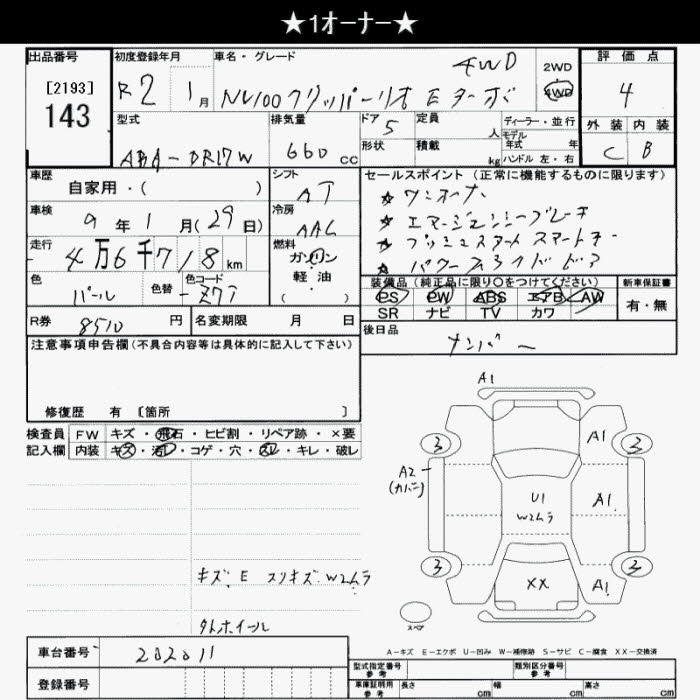 ★1オーナー★
出品番号
[2193]
143
初度登録年月
R2 1月
車名・グレード
4WD
NV100クリッパーリオ Eターボ
2WD
4WD
評価点
4
外装 内装
C B
型式
ABA-DR17W
排気量
660 cc
ドア 5
形状
定員 人
積載 kg
ディーラー・並行
モデル
年式 年
ハンドル 左・右
車歴
自家用・( )
シフト
AT
車検
9年1月(29日)
冷房
AAC
走行
4万6千718km
燃料
ガソリン
軽油
( )
色
パール
色替
色コード
Z7T
R券
8510円
名変期限 月 日
セールスポイント(正常に機能するものに限ります)
★ワンオーナー
★エマージェンシーブレーキ
★プッシュスタート スマートキー
★パワースライドドア
装備品(純正品に限り○をつけてください)
PS PW ABS エアB AW
SR ナビ TV カワ
新車保証書
有・無
後日品
ナンバー
注意事項申告欄(不具合内容等は具体的に記入して下さい)
修復歴 有 [箇所 ]
検査員
記入欄
FW キズ・飛石・ヒビ割・リペア跡・×要
内装 キズ・汚レ・コゲ・穴・スレ・キレ・破レ
A1
3
A1
3
A2
(カバー)
U1
W2ムラ
A1
3
XX
A1
3
スペア
キズ、E スリキズ、W2ムラ
外ホイール
A-キズ E-エクボ U-凹み W-補修跡 S-サビ C-腐食 XX-交換済
車台番号
202011
登録番号
型式指定番号
参考
類別区分番号
参考
車庫証明用
参考
長さ cm
幅 cm
高さ cm